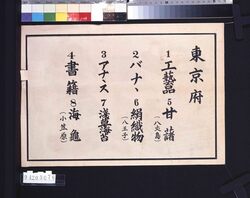 東京府
1 工藝品 5 甘藷（八丈島）
2 バナヽ 6 絹織物（八王子）
3 アナヽス 7 淺草海苔
4 書籍 8 海龜（小笠原）